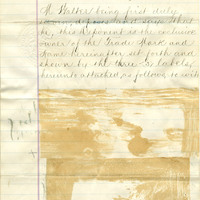 M. Walter being first duly
sworn, deposes and says that
he, this deponent is the exclusive
owner of the Trade Mark and
name hereinafter set forth and
shown by the three (3) labels,
hereunto attached as follows to wit: